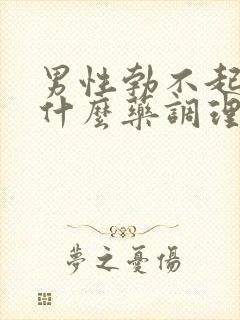 男性勃不起
什麼藥調理
夢之憂傷